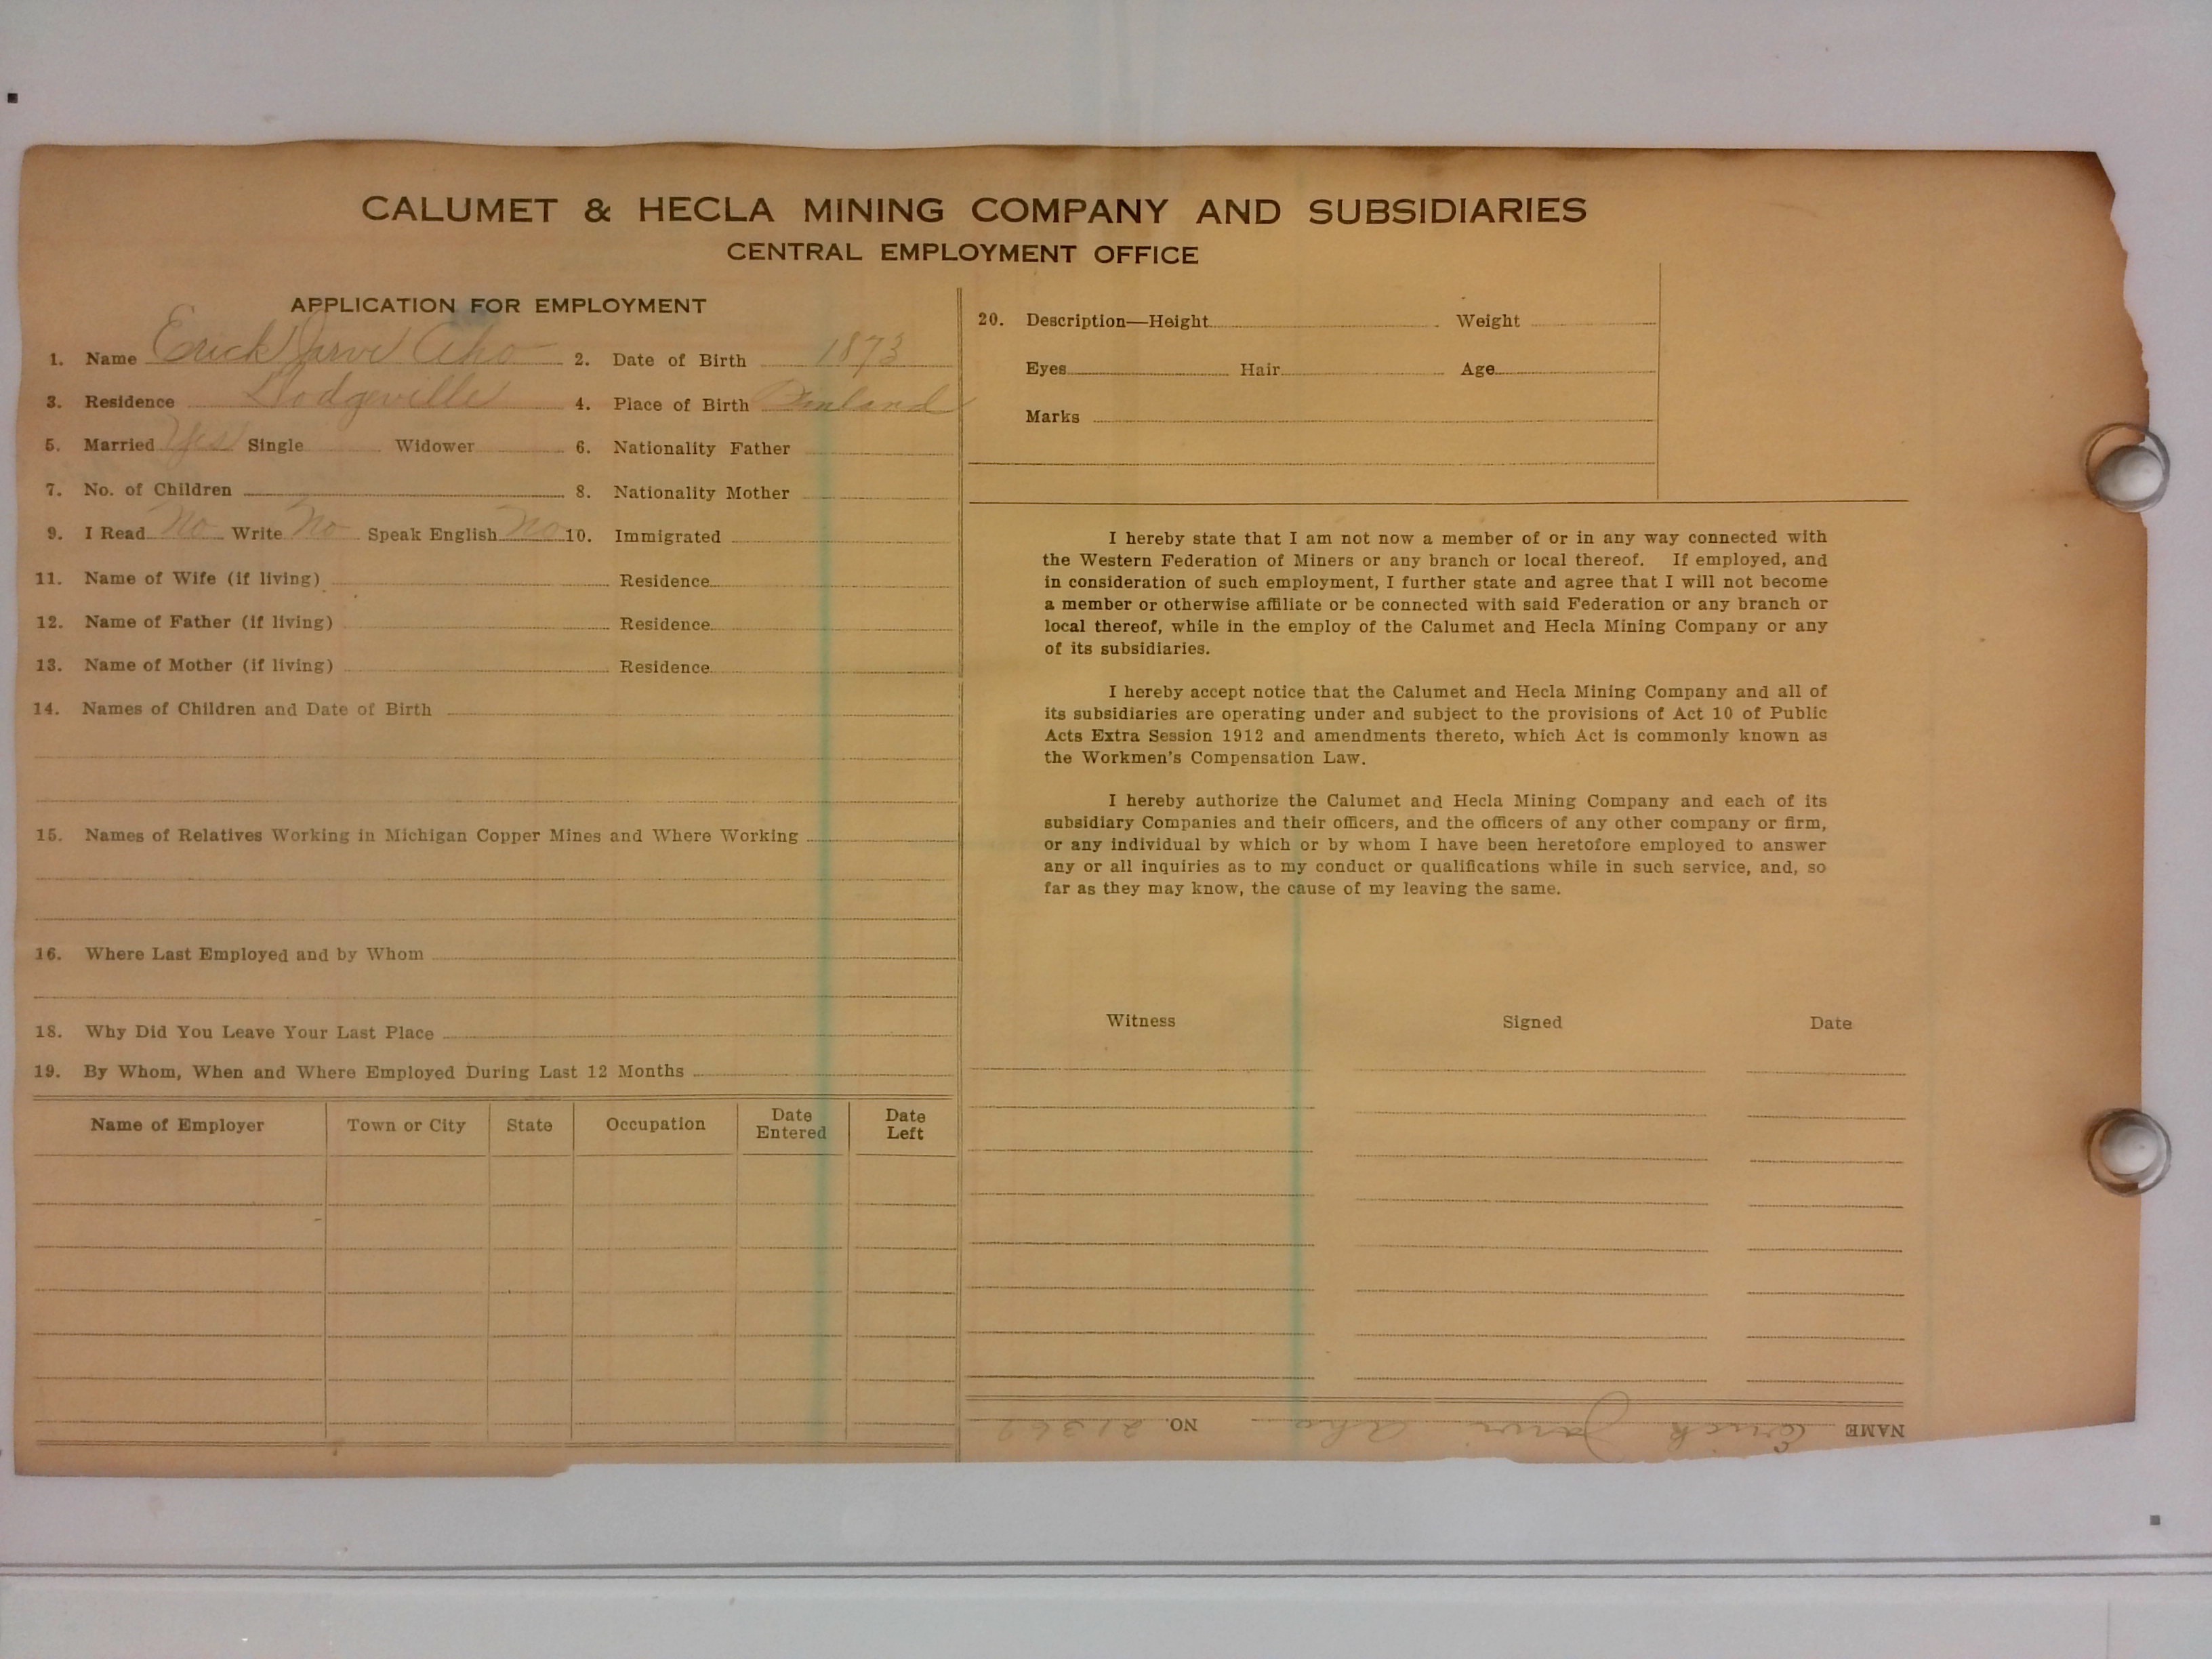 CALUMET & HECLA MINING COMPANY AND SUBSIDIARIES
CENTRAL EMPLOYMENT OFFICE
APPLICATION FOR EMPLOYMENT
1. Name Erick Jarvi Aho 2. Date of Birth 1873
3. Residence Dodgeville 4. Place of Birth Finland
5. Married Yes Single Widower 6. Nationality Father
7. No. of Children 8. Nationality Mother
9. I Read No Write No Speak English No 10. Immigrated
11. Name of Wife (if living) Residence
12. Name of Father (if living) Residence
13. Name of Mother (if living) Residence
14. Names of Children and Date of Birth
15. Names of Relatives Working in Michigan Copper Mines and Where Working
16. Where Last Employed and by Whom
18. Why Did You Leave Your Last Place
19. By Whom, When and Where Employed During Last 12 Months
Name of Employer Town or City State Occupation Date Entered Date Left
20. Description—Height Weight
Eyes Hair Age
Marks
I hereby state that I am not now a member of or in any way connected with
the Western Federation of Miners or any branch or local thereof. If employed, and
in consideration of such employment, I further state and agree that I will not become
a member or otherwise affiliate or be connected with said Federation or any branch or
local thereof, while in the employ of the Calumet and Hecla Mining Company or any
of its subsidiaries.
I hereby accept notice that the Calumet and Hecla Mining Company and all of
its subsidiaries are operating under and subject to the provisions of Act 10 of Public
Acts Extra Session 1912 and amendments thereto, which Act is commonly known as
the Workmen's Compensation Law.
I hereby authorize the Calumet and Hecla Mining Company and each of its
subsidiary Companies and their officers, and the officers of any other company or firm,
or any individual by which or by whom I have been heretofore employed to answer
any or all inquiries as to my conduct or qualifications while in such service, and, so
far as they may know, the cause of my leaving the same.
Witness Signed Date
NAME Erick Jarvi Aho NO. 21369